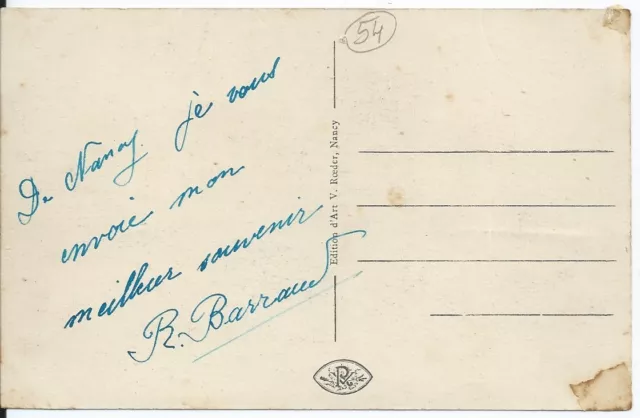 54
De Nancy je vous
envoie mon
meilleur souvenir
R. Barraud
Edition d'Art V. Rœder, Nancy